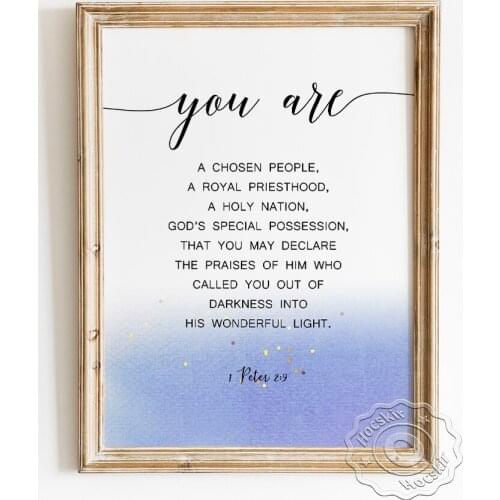 you are
A CHOSEN PEOPLE,
A ROYAL PRIESTHOOD,
A HOLY NATION,
GOD'S SPECIAL POSSESSION,
THAT YOU MAY DECLARE
THE PRAISES OF HIM WHO
CALLED YOU OUT OF
DARKNESS INTO
HIS WONDERFUL LIGHT.
1 Peter 2:9
Hocskir
Hocskir